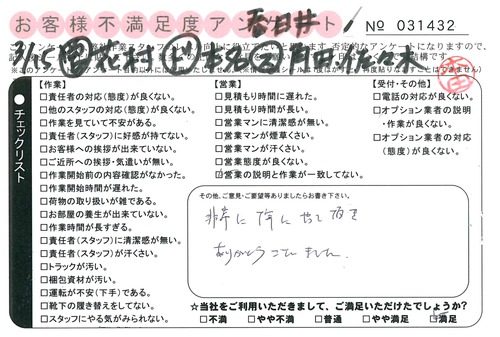 お客様不満足度アンケート
春日井
No 031432
3/15
花村
月田
佐々木
チェックリスト
【作業】
□責任者の対応(態度)が良くない。
□他のスタッフの対応(態度)が良くない。
□作業を見ていて不安がある。
□責任者(スタッフ)に好感が持てない。
□お客様への挨拶が出来ていない。
□ご近所への挨拶・気遣いが無い。
□作業開始前の内容確認がなかった。
□作業開始時間が遅れた。
□荷物の取り扱いが雑である。
□お部屋の養生が出来ていない。
□作業時間が長すぎる。
□責任者(スタッフ)に清潔感が無い。
□責任者(スタッフ)が汗くさい。
□トラックが汚い。
□梱包資材が汚い。
□運転が不安(下手)である。
□靴下の履き替えをしてない。
□スタッフにやる気がみられない。
【営業】
□見積もり時間に遅れた。
□見積もり時間が長い。
□営業マンに清潔感が無い。
□営業マンが煙草くさい。
□営業マンが汗くさい。
□営業態度が良くない。
□営業の説明と作業が一致してない。
【受付・その他】
□電話の対応が良くない。
□オプション業者の説明
・作業が良くない。
□オプション業者の対応
(態度)が良くない。
その他、ご意見・ご要望等ありましたらお書き下さい。
非常に
やって頂き
ありがとうございました。
☆当社をご利用いただきまして、ご満足いただけたでしょうか?
□不満 □やや不満 □普通 □やや満足 □満足